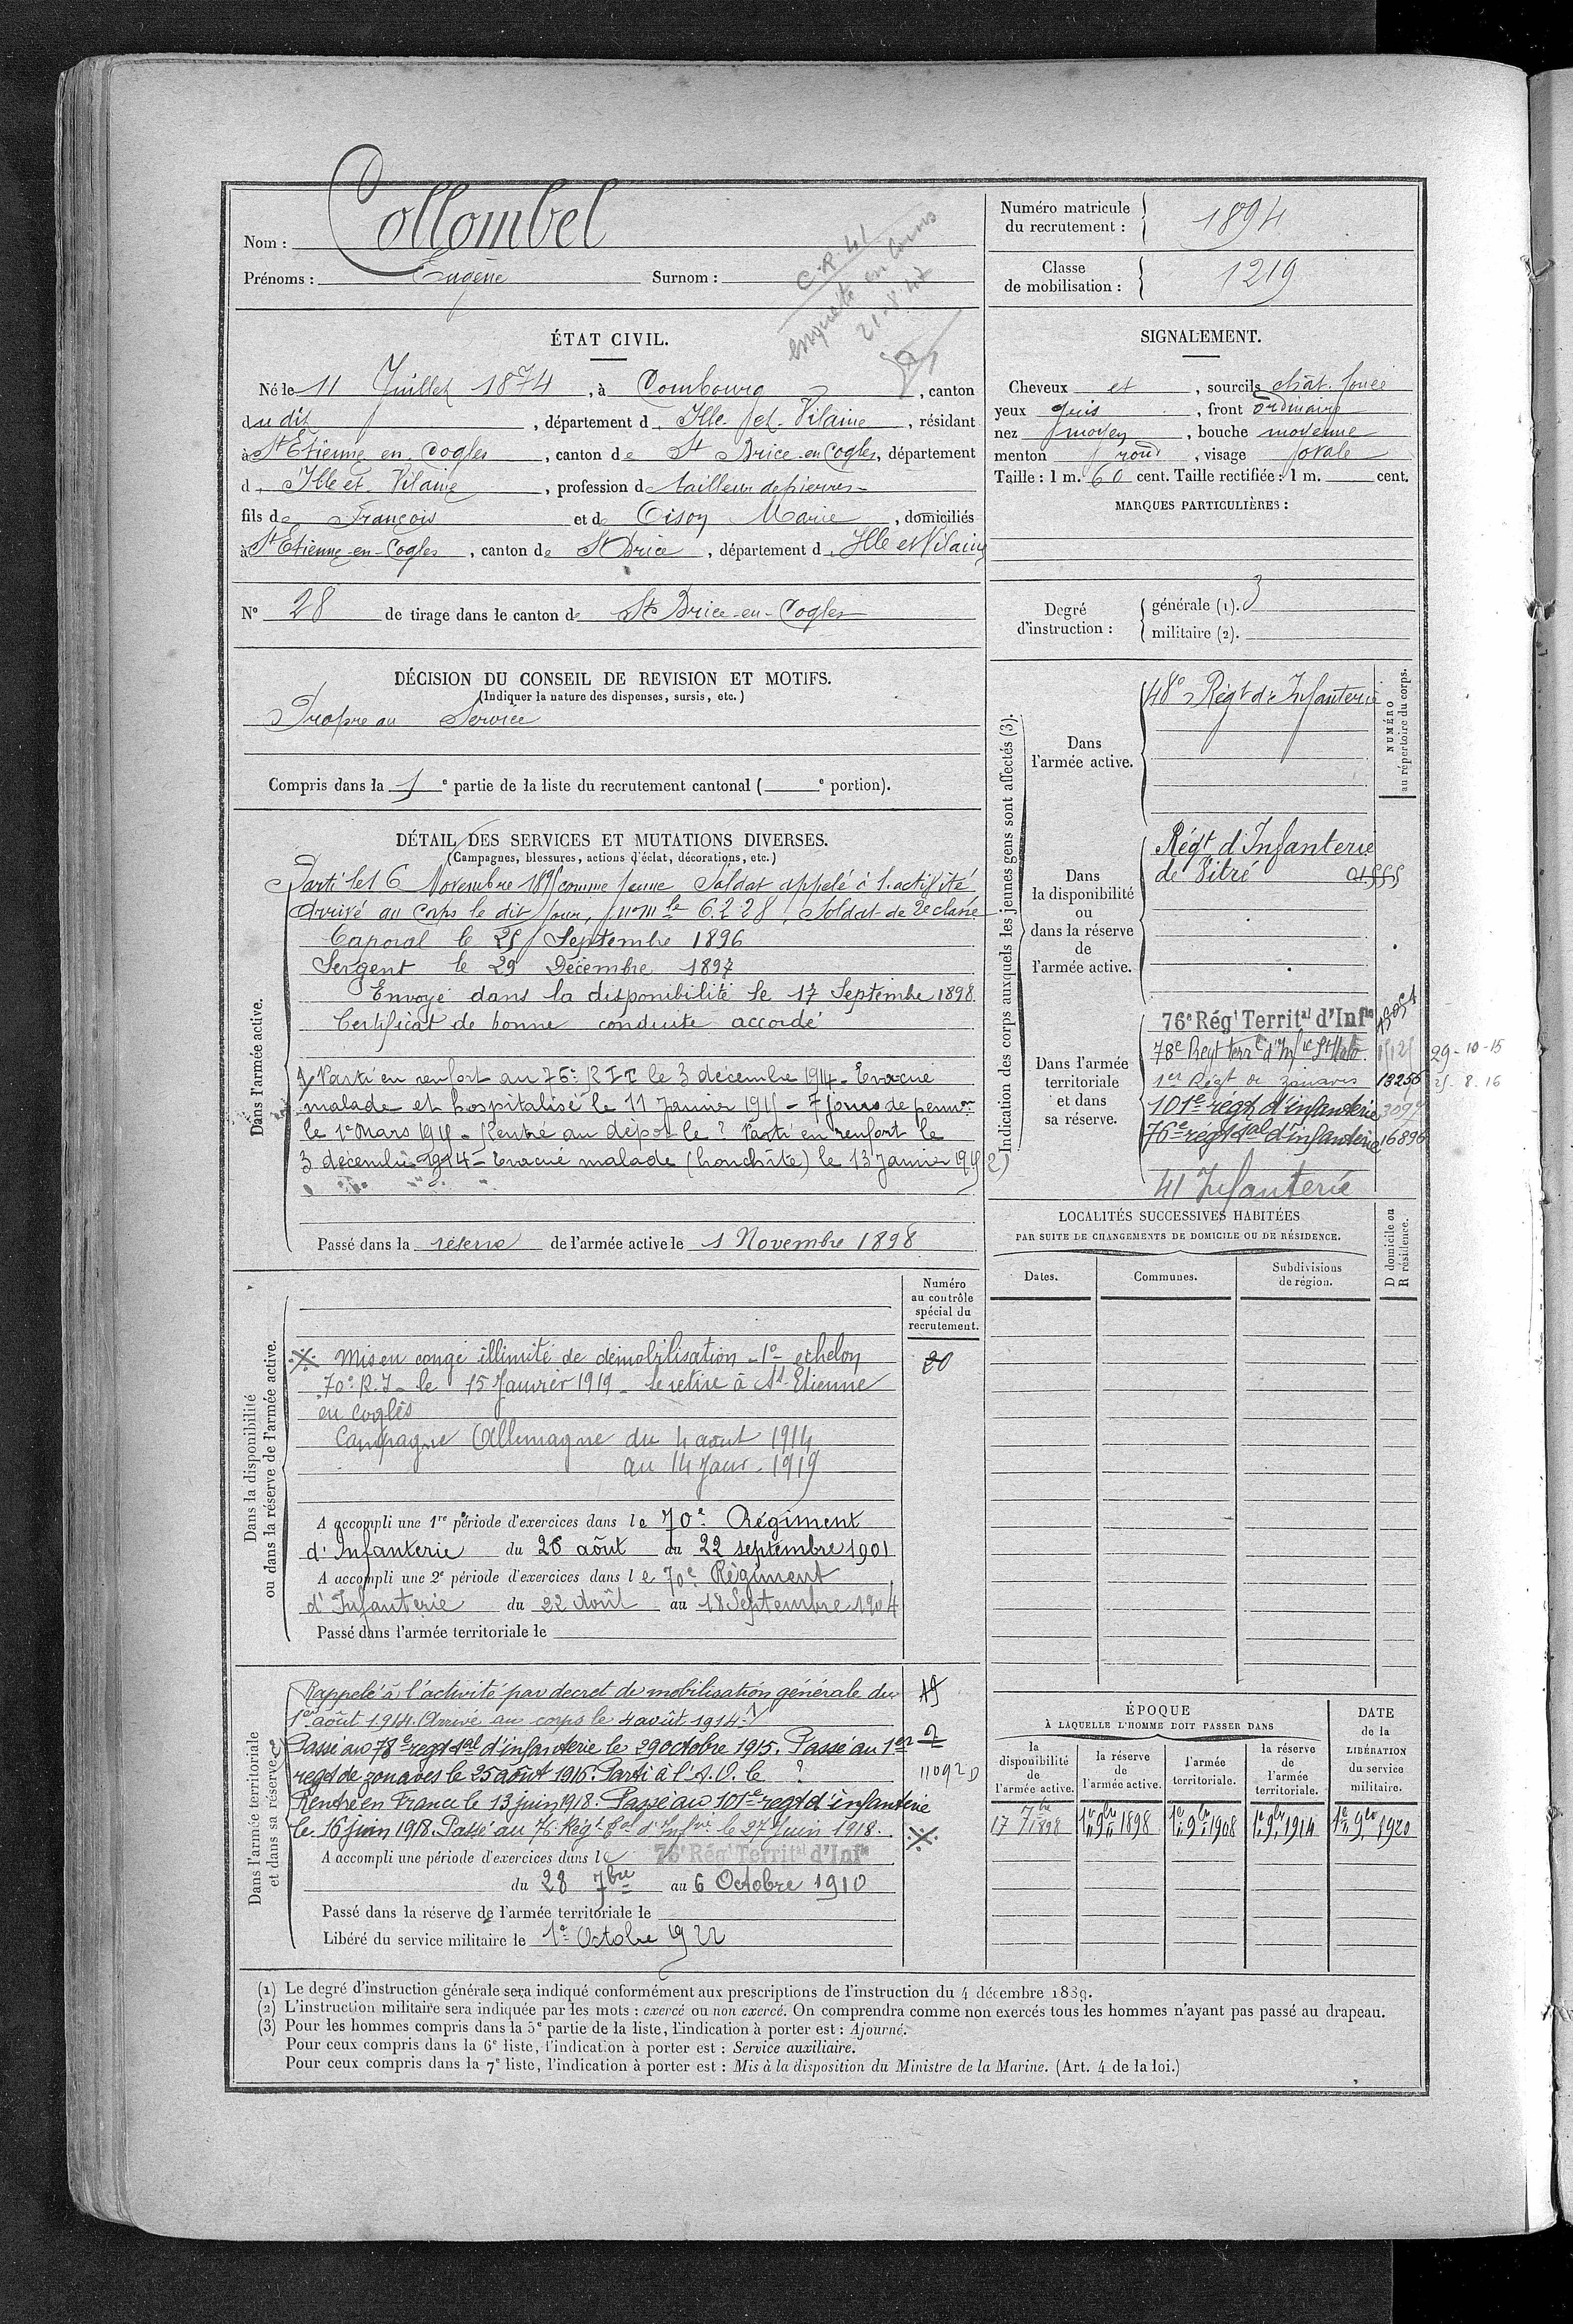 Nom : Collombel
Prénoms : Eugène Surnom :
C.R. 41
enquête en cours
21-8-47
Numéro matricule du recrutement : 1894
Classe de mobilisation : 1219
ÉTAT CIVIL.
Né le 11 Juillet 1874, à Combourg, canton
du dit, département d Ille-et-Vilaine, résidant
à St Etienne en Cogles, canton de St Brice-en-Cogles, département
d Ille et Vilaine, profession d tailleur de pierres
fils de François et de Oison Marie, domiciliés
à St Etienne-en-Cogles, canton de St Brice, département d Ille et Vilaine
N° 28 de tirage dans le canton de St Brice-en-Cogles
SIGNALEMENT.
Cheveux et, sourcils chât. foncé
yeux gris, front ordinaire
nez moyen, bouche moyenne
menton rond, visage ovale
Taille : 1 m. 60 cent. Taille rectifiée : 1 m. cent.
MARQUES PARTICULIÈRES :
Degré d'instruction :
générale (1). 3
militaire (2).
DÉCISION DU CONSEIL DE REVISION ET MOTIFS.
(Indiquer la nature des dispenses, sursis, etc.)
Propre au Service
Compris dans la 1 e partie de la liste du recrutement cantonal ( e portion).
DÉTAIL DES SERVICES ET MUTATIONS DIVERSES.
(Campagnes, blessures, actions d'éclat, décorations, etc.)
Dans l'armée active.
Parti le 16 Novembre 1895 comme jeune Soldat appelé à l'activité
Arrivé au Corps le dit jour, n° mle 6228, Soldat de 2e classe
Caporal le 25 Septembre 1896
Sergent le 29 Décembre 1897
Envoyé dans la disponibilité le 17 Septembre 1898
Certificat de bonne conduite accordé
Parti en renfort au 76e R I T le 3 décembre 1914 - Evacué
malade et hospitalisé le 11 Janvier 1915 - 7 jours de permon
le 1er Mars 1915 - Rentré au dépot le ? Parti en renfort le
3 décembre 1914 - Evacué malade (bronchite) le 13 Janvier 1915
Passé dans la réserve de l'armée active le 1 Novembre 1898
Indication des corps auxquels les jeunes gens sont affectés (3).
NUMÉRO au répertoire du corps.
Dans l'armée active.
48e Régt d'Infanterie
Dans la disponibilité ou dans la réserve de l'armée active.
Régt d'Infanterie
de Vitré
Dans l'armée territoriale et dans sa réserve.
76e Régt Territal d'Infie
78e Regt terrl d'Infie St Malo 29-10-15
1er Régt de zouaves 13256 25-8-16
101e régt d'infanterie
76e régt tal d'infanterie 16896
41 Infanterie
LOCALITÉS SUCCESSIVES HABITÉES
PAR SUITE DE CHANGEMENTS DE DOMICILE OU DE RÉSIDENCE.
Dates. Communes. Subdivisions de région. D domicile ou R résidence.
Numéro au contrôle spécial du recrutement.
20
Dans la disponibilité ou dans la réserve de l'armée active.
Mis en congé illimité de démobilisation - 1er echelon
70e R.I - le 15 Janvier 1919 - se retire à St-Etienne
en Coglès
Campagne Allemagne du 4 aout 1914
au 14 Janv. 1919
A accompli une 1re période d'exercices dans le 70e Régiment
d'Infanterie du 26 août au 22 septembre 1901
A accompli une 2e période d'exercices dans le 70e Régiment
d'Infanterie du 22 Août au 18 Septembre 1904
Passé dans l'armée territoriale le
Dans l'armée territoriale et dans sa réserve.
Rappelé à l'activité par decret de mobilisation générale du
1er août 1914. Arrivé au corps le 4 août 1914.
Passé au 78e regt tal d'infanterie le 29 octobre 1915. Passé au 1er
regt de zouaves le 25 août 1916. Parti à l'A.O. le ?
11092
Rentré en France le 13 juin 1918. Passé au 101e regt d'infanterie
le 16 juin 1918. Passé au 76 Régt tal d'Infie le 27 Juin 1918.
A accompli une période d'exercices dans le 76e Régt Territal d'Infie
du 28 7bre au 6 Octobre 1910
Passé dans la réserve de l'armée territoriale le
Libéré du service militaire le 1er Octobre 1922
ÉPOQUE
À LAQUELLE L'HOMME DOIT PASSER DANS
la disponibilité de l'armée active.
la réserve de l'armée active.
l'armée territoriale.
la réserve de l'armée territoriale.
DATE de la LIBÉRATION du service militaire.
17 7bre 1898 1er 9bre 1898 1er 9bre 1908 1er 9bre 1914 1er 9bre 1920
(1) Le degré d'instruction générale sera indiqué conformément aux prescriptions de l'instruction du 4 décembre 1889.
(2) L'instruction militaire sera indiquée par les mots : exercé ou non exercé. On comprendra comme non exercés tous les hommes n'ayant pas passé au drapeau.
(3) Pour les hommes compris dans la 5e partie de la liste, l'indication à porter est : Ajourné.
Pour ceux compris dans la 6e liste, l'indication à porter est : Service auxiliaire.
Pour ceux compris dans la 7e liste, l'indication à porter est : Mis à la disposition du Ministre de la Marine. (Art. 4 de la loi.)